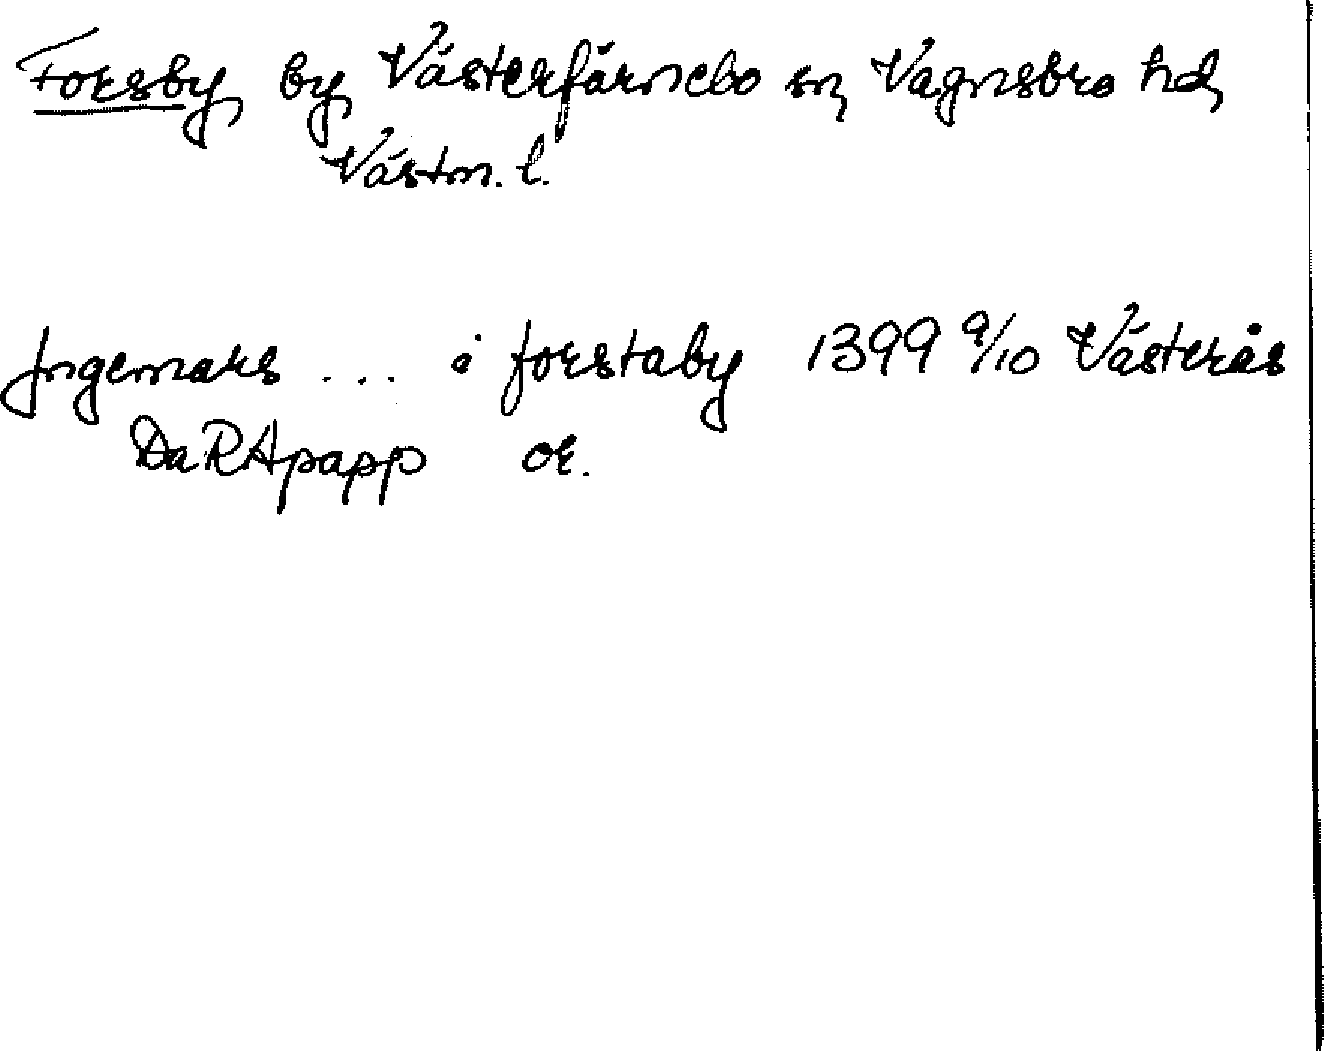 Forsby, by, Västerfärnebo sn, Vagnsbro hd,
Västm. l.
Jngemars ... i forstaby 1399 9/10 Västerås
DaRApapp or.